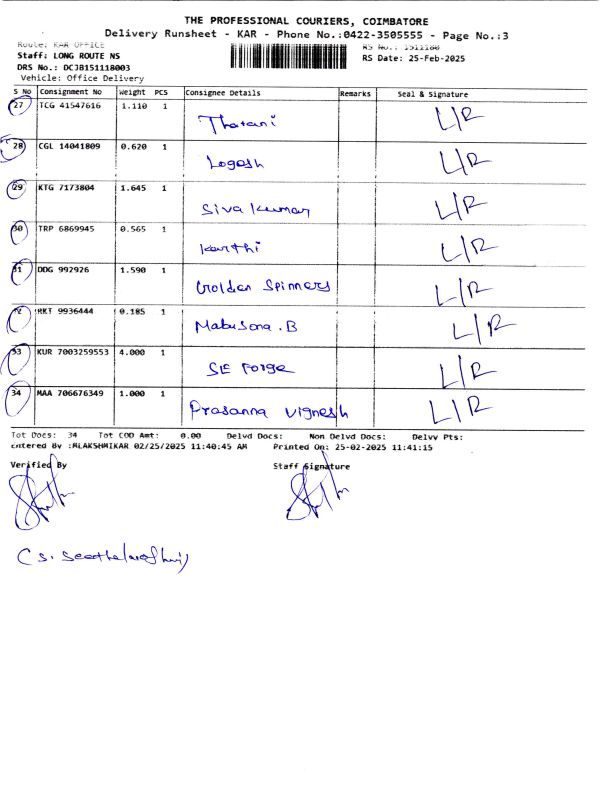 THE PROFESSIONAL COURIERS, COIMBATORE
Delivery Runsheet - KAR - Phone No.:0422-3505555 - Page No.:3
Route: KAR OFFICE RS No.: 1511180
Staff: LONG ROUTE NS RS Date: 25-Feb-2025
DRS No.: DCJB151118003
Vehicle: Office Delivery
S No Consignment No Weight PCS Consignee Details Remarks Seal & Signature
27 TCG 41547616 1.110 1 Tharani L/R
28 CGL 14041809 0.620 1 Logesh L/R
29 KTG 7173804 1.645 1 Siva Kumar L/R
30 TRP 6869945 0.565 1 Karthi L/R
31 DDG 992926 1.590 1 Golden Spinners L/R
RKT 9936444 0.185 1 Mabusona . B L/R
33 KUR 7003259553 4.000 1 SE Forge L/R
34 MAA 706676349 1.000 1 Prasanna Vignesh L/R
Tot Docs: 34 Tot COD Amt: 0.00 Delvd Docs: Non Delvd Docs: Delvv Pts:
Entered By :MLAKSHMIKAR 02/25/2025 11:40:45 AM Printed On: 25-02-2025 11:41:15
Verified By Staff Signature